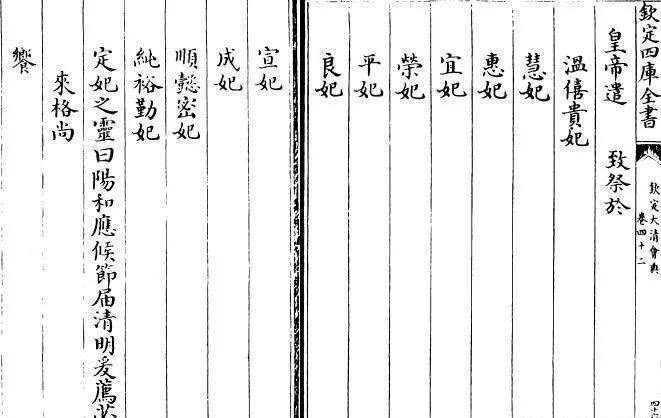 欽定四庫全書
欽定大清會典
卷四十二
皇帝遣 致祭於
溫僖貴妃
慧妃
惠妃
宜妃
榮妃
平妃
良妃
宣妃
成妃
順懿密妃
純裕勤妃
定妃之靈曰陽和應候節届清明爰薦
來格尚
饗